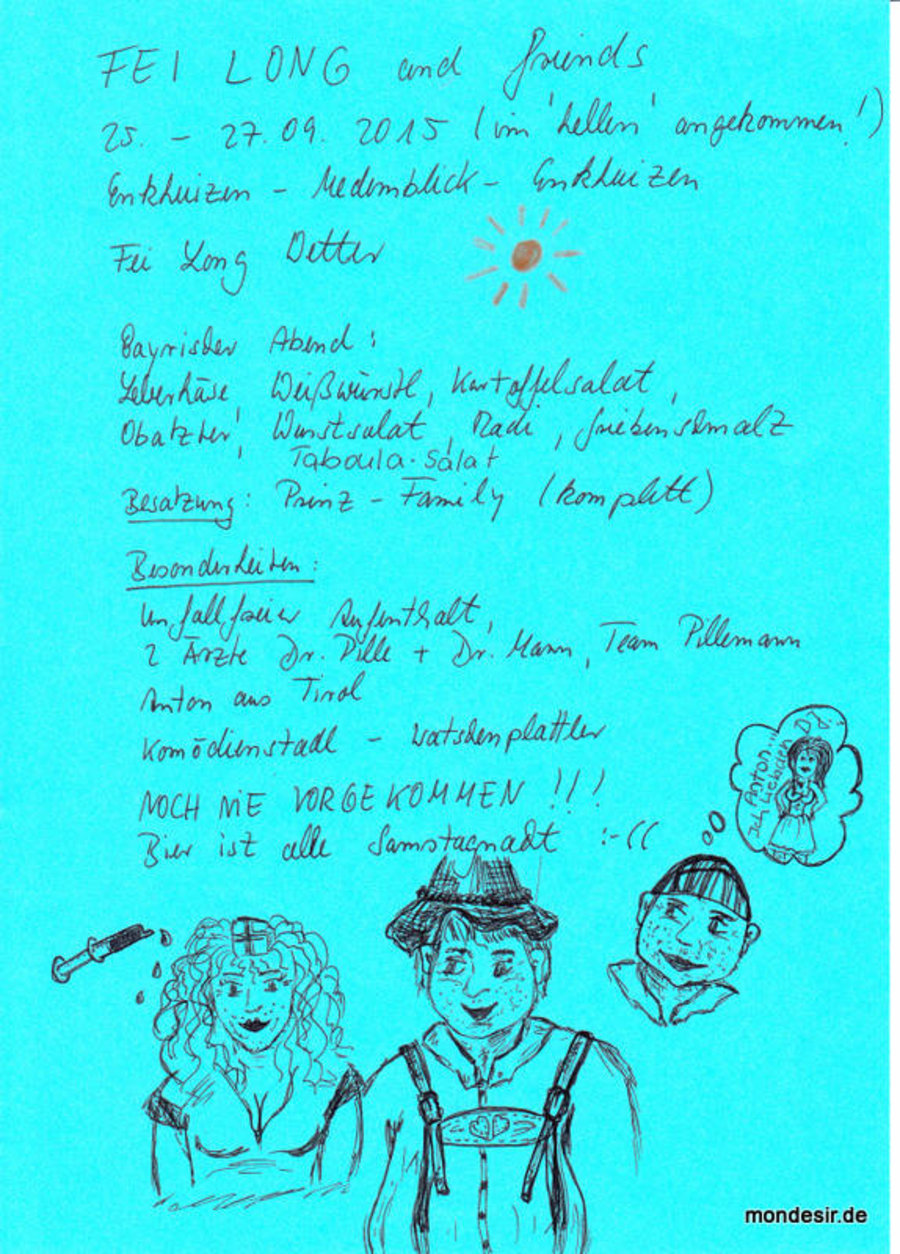 FEI LONG and friends
25. - 27.09. 2015 (im 'hellen' angekommen!)
Enkhuizen - Medemblick - Enkhuizen
Fei Long Wetter
Bayrischer Abend:
Leberkäse, Weißwürstl, Kartoffelsalat,
Obatzter, Wurstsalat, Radi, Griebenschmalz
Taboula-Salat
Besatzung: Prinz - Family (komplett)
Besonderheiten:
Unfallfreier Aufenthalt,
2 Ärzte Dr. Pille + Dr. Mann, Team Pillemann
Anton aus Tirol
Komödienstadl - Watschenplattler
NOCH NIE VORGEKOMMEN !!!
Bier ist alle Samstagnacht :-((
Anton...
Ich liebe
mondesir.de